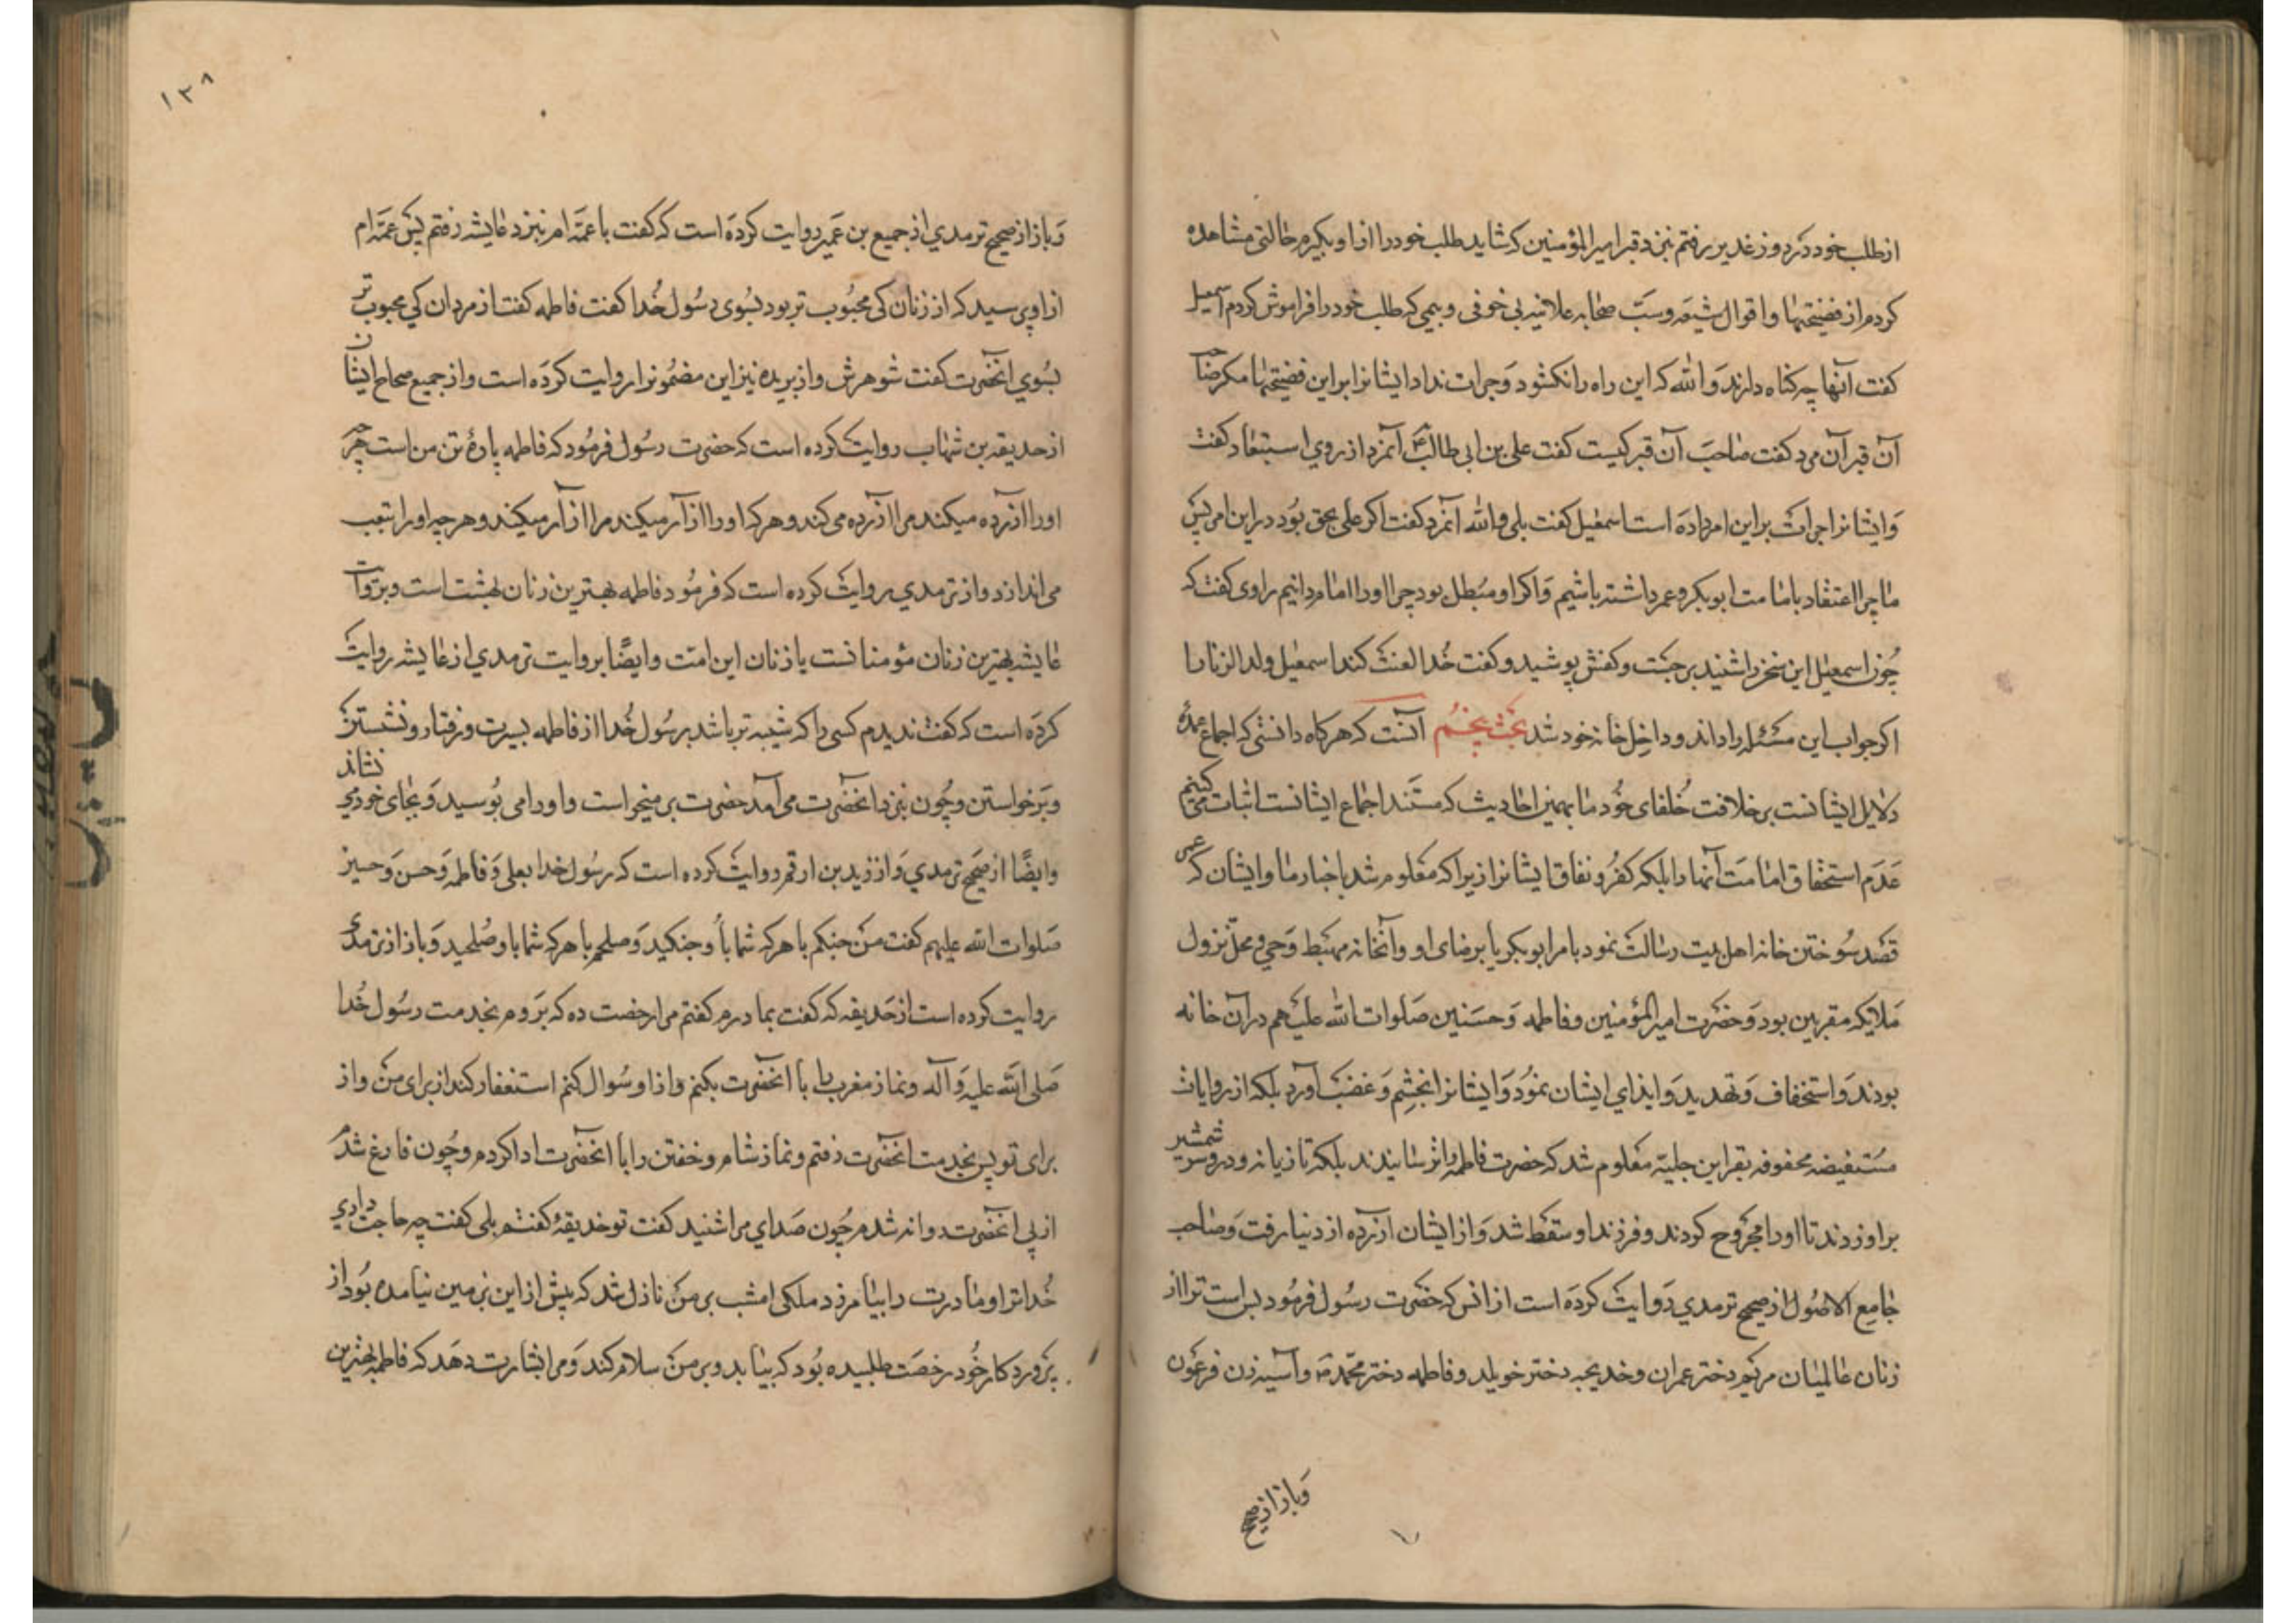 از طلب خود در روز غدیر رفتم بنزد قبر امیر المؤمنین که شاید طلب خود را از او بگیرم حالتی مشاهده
کردم از فضیحتها و اقوال شیعه و سبّ صحابه علانیه بی خوفی و بیمی که طلب خود را فراموش کردم اسمعیل
کفت آنها چه کناه دارند والله که این راه را نکشود و جرات نداد ایشانرا بر این فضیحتها مکر صاحب
آن قبر آن مرد کفت صاحب آن قبر کیست کفت علی بن ابی طالب ع آنمرد از روی استبعاد کفت
و ایشانرا جرات بر این امر داده است اسمعیل کفت بلی والله آنمرد کفت اکر علی بحق بود در این امر پس
ما چرا اعتقاد بامامت ابوبکر و عمر داشته باشیم و اکر او مبطل بود چرا او را امام دانیم راوی کفت که
چون اسمعیل این سخن را شنید برجست و کفش پوشید و کفت خدا لعنت کند اسمعیل ولد الزنا را
اکر جواب این مسئله را داند و داخل خانه خود شد بحث پنجم آنست که هرکاه دانستی که اجماع عمدۀ
دلایل ایشانست بر خلافت خلفای خود ما بهمین احادیث که مستند اجماع ایشانست اثبات می کنیم
عدم استحقاق امامت آنها را بلکه کفر و نفاق ایشانرا زیرا که معلوم شد باخبار ما و ایشان که عمر
قصد سوختن خانه اهل بیت رسالت نمود بامر ابوبکر یا برضای او و آنخانه مهبط وحی و محل نزول
ملایکه مقربین بود و حضرت امیر المؤمنین و فاطمه و حسنین صلوات الله علیهم در آن خانه
بودند و استخفاف و تهدید و ایذای ایشان نمود و ایشانرا بخشم و غضب آورد بلکه از روایات
مستفیضه محفوفه بقراین جلیّه معلوم شد که حضرت فاطمه را ترسانیدند بلکه تازیانه و در و سر شمشیر
بر او زدند تا او را مجروح کردند و فرزند او سقط شد و از ایشان آزرده از دنیا رفت و صاحب
جامع الاصول از صحیح ترمدی روایت کرده است از انس که حضرت رسول فرمود بس است ترا از
زنان عالمیان مریم دختر عمران و خدیجه دختر خویلد و فاطمه دختر محمد ص و آسیه زن فرعون
و باز از صحیح
۱۳۸
و باز از صحیح ترمدی از جمیع بن عمیر روایت کرده است که کفت با عمّه ام بنزد عایشه رفتم پس عمّه ام
از او پرسید که از زنان کی محبوب تر بود بسوی رسول خدا کفت فاطمه کفت از مردان کی محبوب تر
بسوی آنحضرت کفت شوهرش و از بریده نیز این مضمونرا روایت کرده است و از جمیع صحاح ایشان
از حدیقه بن شهاب روایت کرده است که حضرت رسول فرمود که فاطمه پارۀ تن من است هر چه
او را آزرده میکند مرا آزرده می کند و هر که او را ازار میکند مرا ازار میکند و هر چه او را بتعب
می اندازد و از ترمدی روایت کرده است که فرمود فاطمه بهترین زنان بهشت است و بروایت
عایشه بهترین زنان مؤمنانست یا زنان این امت و ایضًا بروایت ترمدی از عایشه روایت
کرده است که کفت ندیدم کسی را که شبیه تر باشد برسول خدا از فاطمه بسیرت و رفتار و نشستن
و برخواستن و چون بنزد آنحضرت می آمد حضرت بر میخواست و او را می بوسید و بجای خود می نشاند
و ایضًا از صحیح ترمدی و از زید بن ارقم روایت کرده است که رسول خدا بعلی و فاطمه و حسن و حسین
صلوات الله علیهم کفت من جنکم با هر که شما با او جنکید و صلحم با هر که شما با او صلحید و باز از ترمدی
روایت کرده است از حدیفه که کفت بمادرم کفتم مرا رخصت ده که بروم بخدمت رسول خدا
صلی الله علیه و آله و نماز مغرب را با آنحضرت بکنم و از او سوال کنم استغفار کند از برای من و از
برای تو پس بخدمت آنحضرت رفتم و نماز شام و خفتن را با آنحضرت ادا کردم و چون فارغ شد
از پی آنحضرت روانه شدم چون صدای مرا شنید کفت تو حدیفۀ کفتم بلی کفت چه حاجت داری
خدا ترا و مادرت را بیامرزد ملکی امشب بر من نازل شد که پیش از این بزمین نیامده بود از
پروردکار خود رخصت طلبیده بود که بیاید و بر من سلام کند و مرا بشارت دهد که فاطمه بهترین